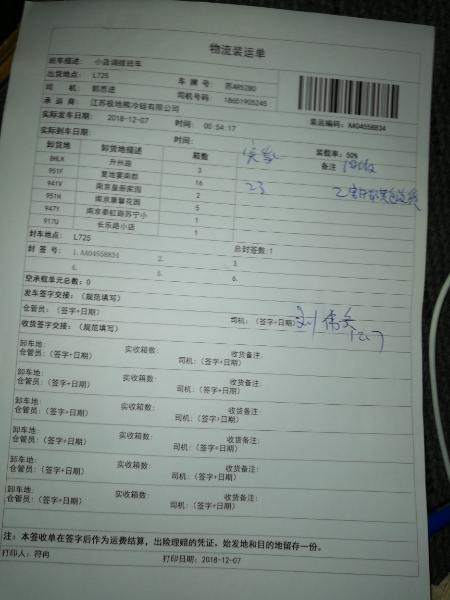 物流装运单
班车描述： 小店调拨班车
出货地点： L725 车 牌 号： 苏AR5280
司 机： 郭恩进 司机号码： 18651905245
承 运 商： 江苏极地熊冷链有限公司
实际发车日期： 2018-12-07 时间： 00:54:17 装运编码：AA04558834
实际到车日期： 时间： 装载率：50%
卸货地 卸货地描述 箱数 备注
8HLX 升州路 3
951F 复地宴南都 16
941V 南京皇册家园 2 23
951H 南京康馨花园 5
947Y 南京秦虹路苏宁小 1
917U 长乐路小店 1
封车地点： L725 总封签数：1
封 签 号： 1.AA04558834 2. 3.
4. 5. 6.
空承载单元总数：0
发车签字交接：（规范填写）
仓管员：（签字+日期） 司机：（签字+日期） 12.7
收货签字交接：（规范填写）
卸车地： 实收箱数： 收货备注：
仓管员：（签字+日期） 司机：（签字+日期）
卸车地： 实收箱数： 收货备注：
仓管员：（签字+日期） 司机：（签字+日期）
卸车地： 实收箱数： 收货备注：
仓管员：（签字+日期） 司机：（签字+日期）
卸车地： 实收箱数： 收货备注：
仓管员：（签字+日期） 司机：（签字+日期）
卸车地： 实收箱数： 收货备注：
仓管员：（签字+日期） 司机：（签字+日期）
卸车地： 实收箱数： 收货备注：
仓管员：（签字+日期） 司机：（签字+日期）
注：本签收单在签字后作为运费结算，出险理赔的凭证。始发地和目的地留存一份。
打印人：符冉 打印日期：2018-12-07